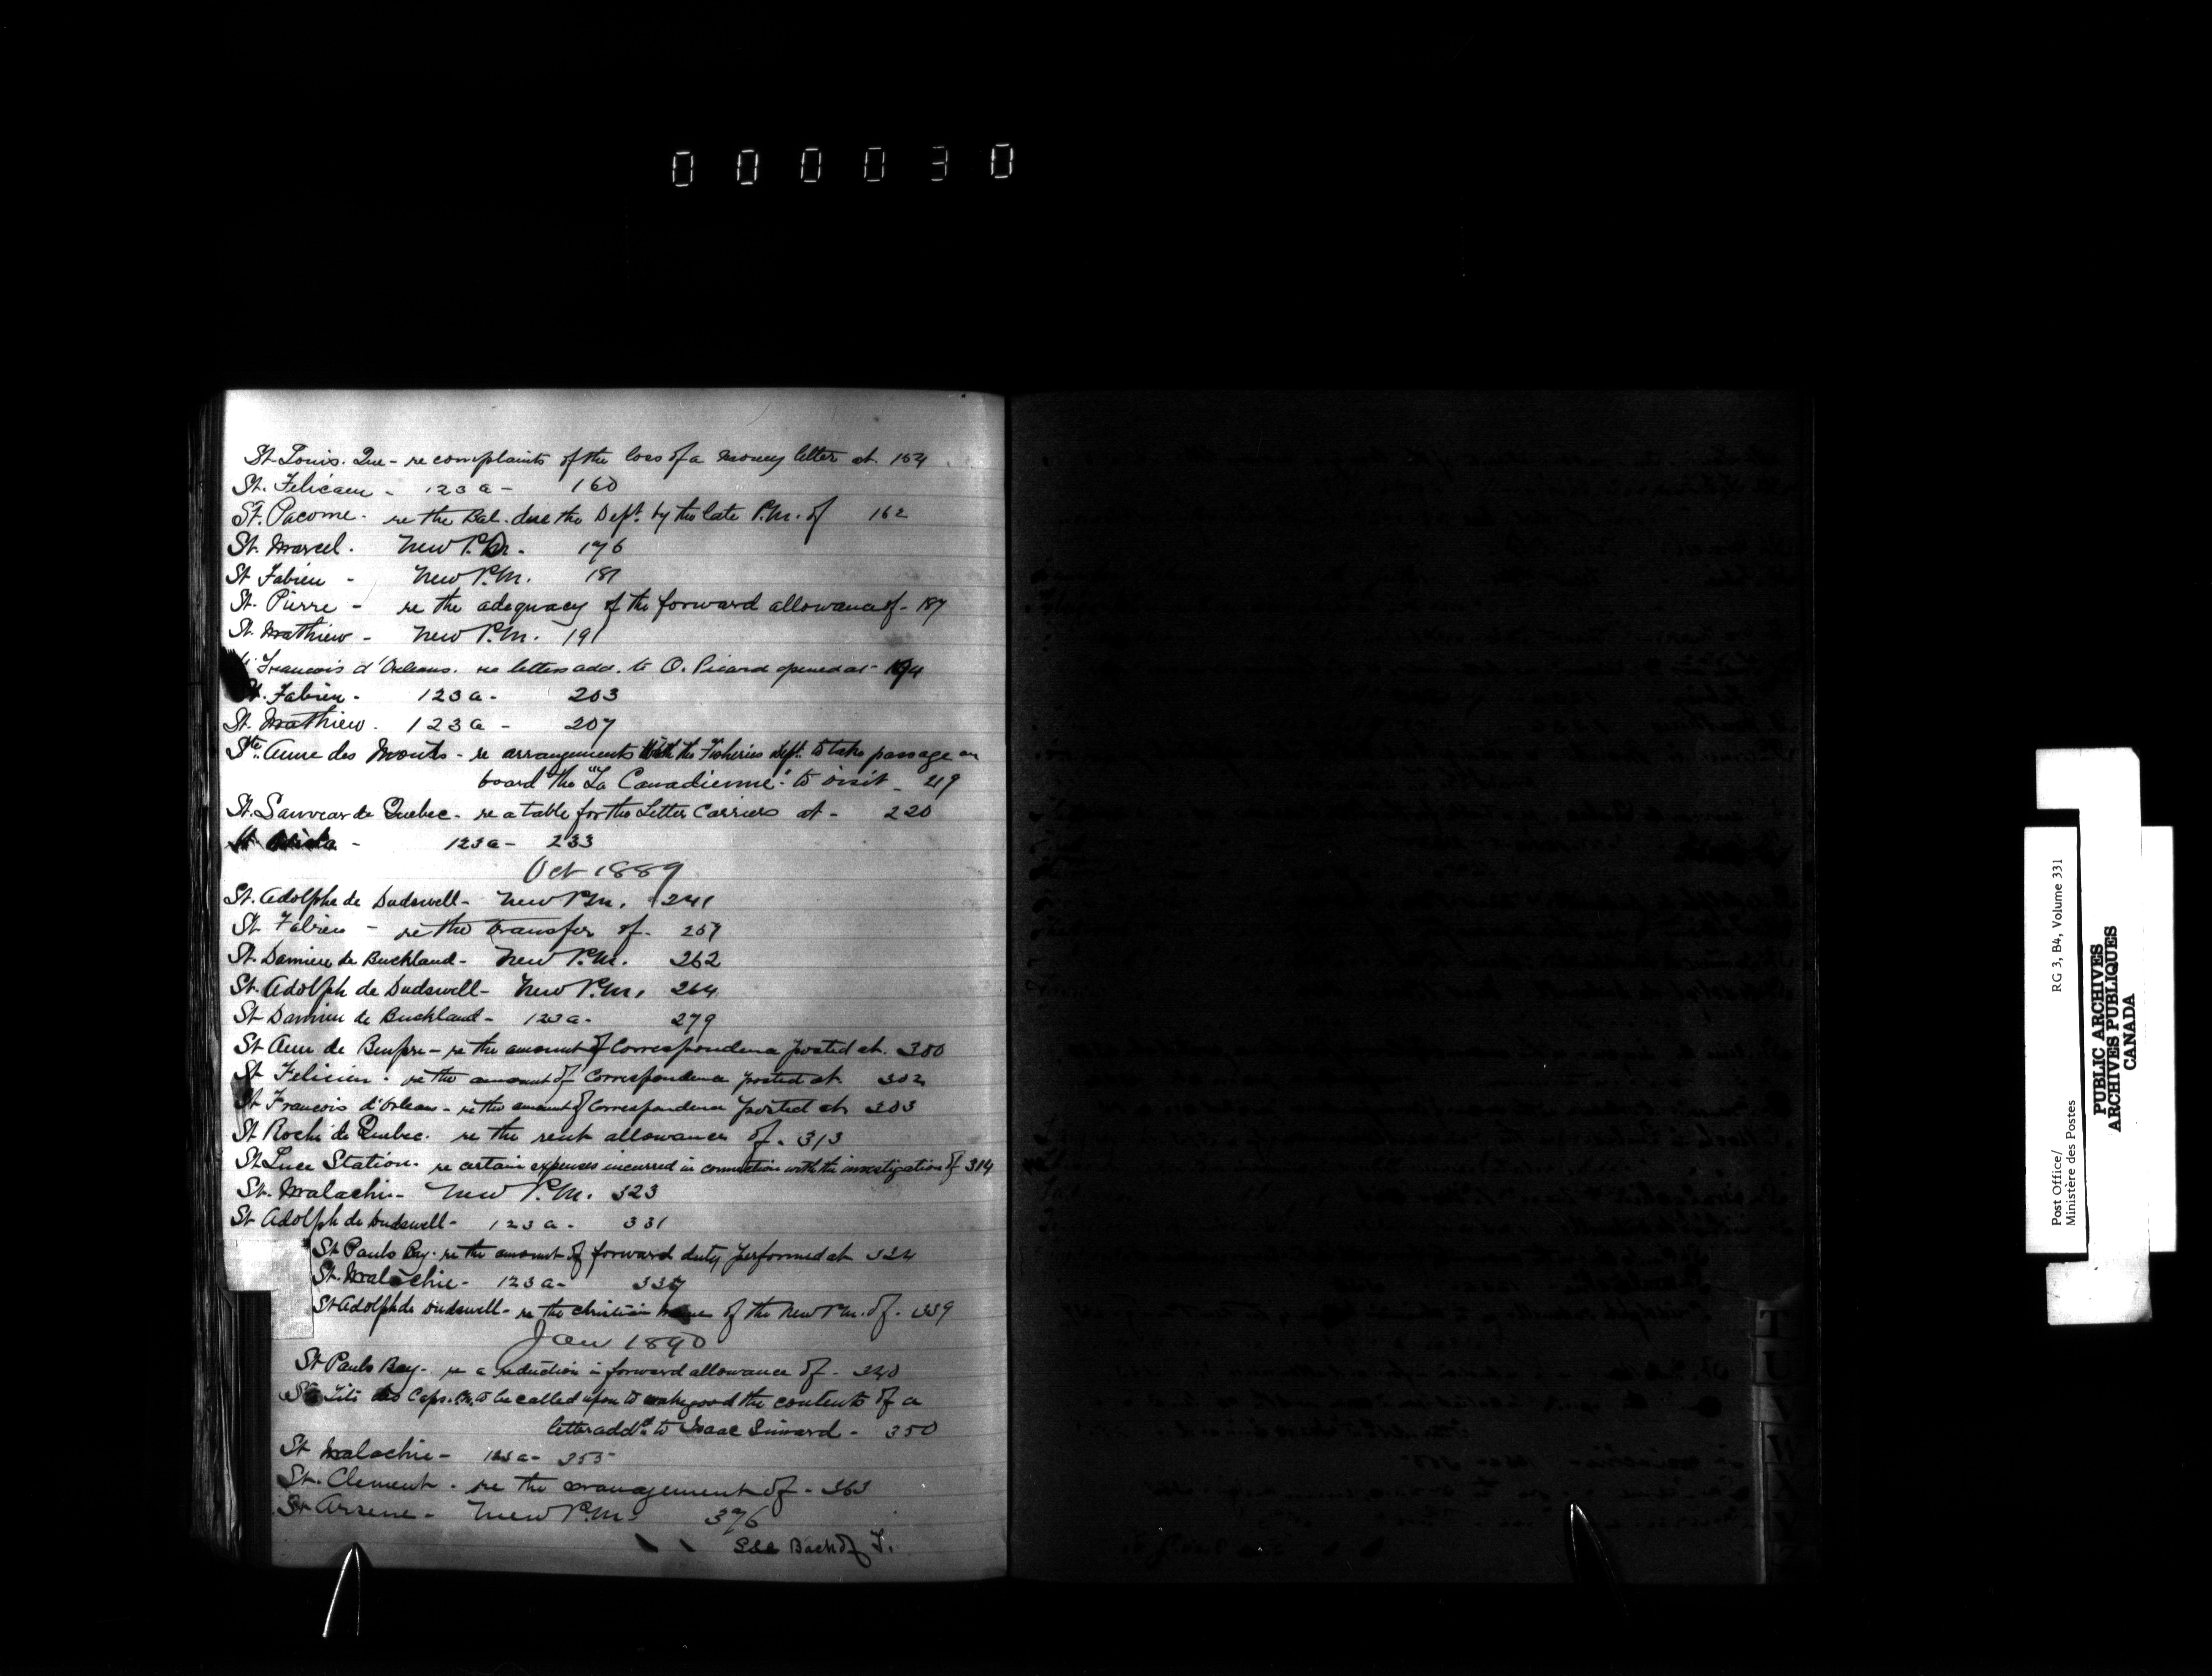 000030
St. Louis. Que - re complaints of the loss of a money letter at. 154
St. Feliciem - 123a - 160
St. Pacome. re the Bal. due the Dept. by the late P.M. of 162
St. Marcel. New P.M. - 176
St Fabien - New P.M. 181
St. Pierre - re the adequacy of the forward allowance of - 187
St. Mathiew - New P.M. 191
St. Francois d'Orleans. re letters add. to O. Picard opened at - 194
St. Fabien - 123a - 203
St. Mathiew. 123a - 207
Ste. Anne des Monts - re arrangements with the Fisheries Dept. to take passage on
board the "La Canadienne" to visit - 219
St. Sauveur de Quebec - re a table for the Letter Carriers at - 220
St. - 123a - 233
Oct 1889
St. Adolphe de Dudswell - New P.M. 241
St Fabien - re the transfer of - 257
St. Damien de Buckland - New P.M. 262
St. Adolph de Dudswell - New P.M. 264
St Damien de Buckland - 123a - 279
St Ann de Beupre - re the amount of Correspondence posted at. 300
St Felicien - re the amount of Correspondence posted at 302
St Francois d'Orlean - re the amount of Correspondence posted at 303
St Rochs de Quebec. re the rent allowance of. 313
St Luce Station. re certain expenses incurred in connection with the investigation of 314
St. Malachi - New P.M. 323
St Adolph de Dudswell - 123a - 331
St Pauls Bay. re the amount of forward duty performed at 324
St. Malachie - 123a - 337
St Adolph de Dudswell - re the christian name of the New P.M. of - 339
Jan 1890
St Pauls Bay - re a reduction in forward allowance of - 340
St Tite des Caps. P.M. to be called upon to make good the contents of a
letter addd. to Isaac Simard - 350
St Malachie - 123a - 355
St. Clement - re the management of - 363
St Arsene - New P.M. 376
See Back of T.
T
U
V
W
X
Y
Z
Post Office/ RG 3, B4, Volume 331
Ministère des Postes
PUBLIC ARCHIVES
ARCHIVES PUBLIQUES
CANADA